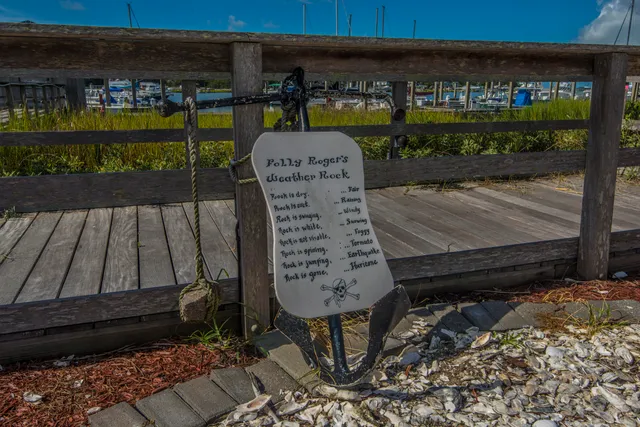 Polly Roger's
Weather Rock
Rock is dry, ... Fair
Rock is wet, ... Raining
Rock is swinging, ... Windy
Rock is white, ... Snowing
Rock is not visible, ... Foggy
Rock is spining, ... Tornato
Rock is jumping, ... Earthquake
Rock is gone, ... Huricane